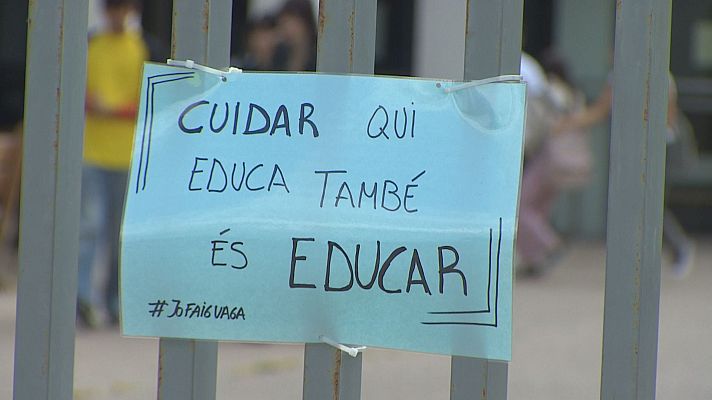 CUIDAR QUI
EDUCA TAMBÉ
ÉS EDUCAR
#JOFAIGVAGA